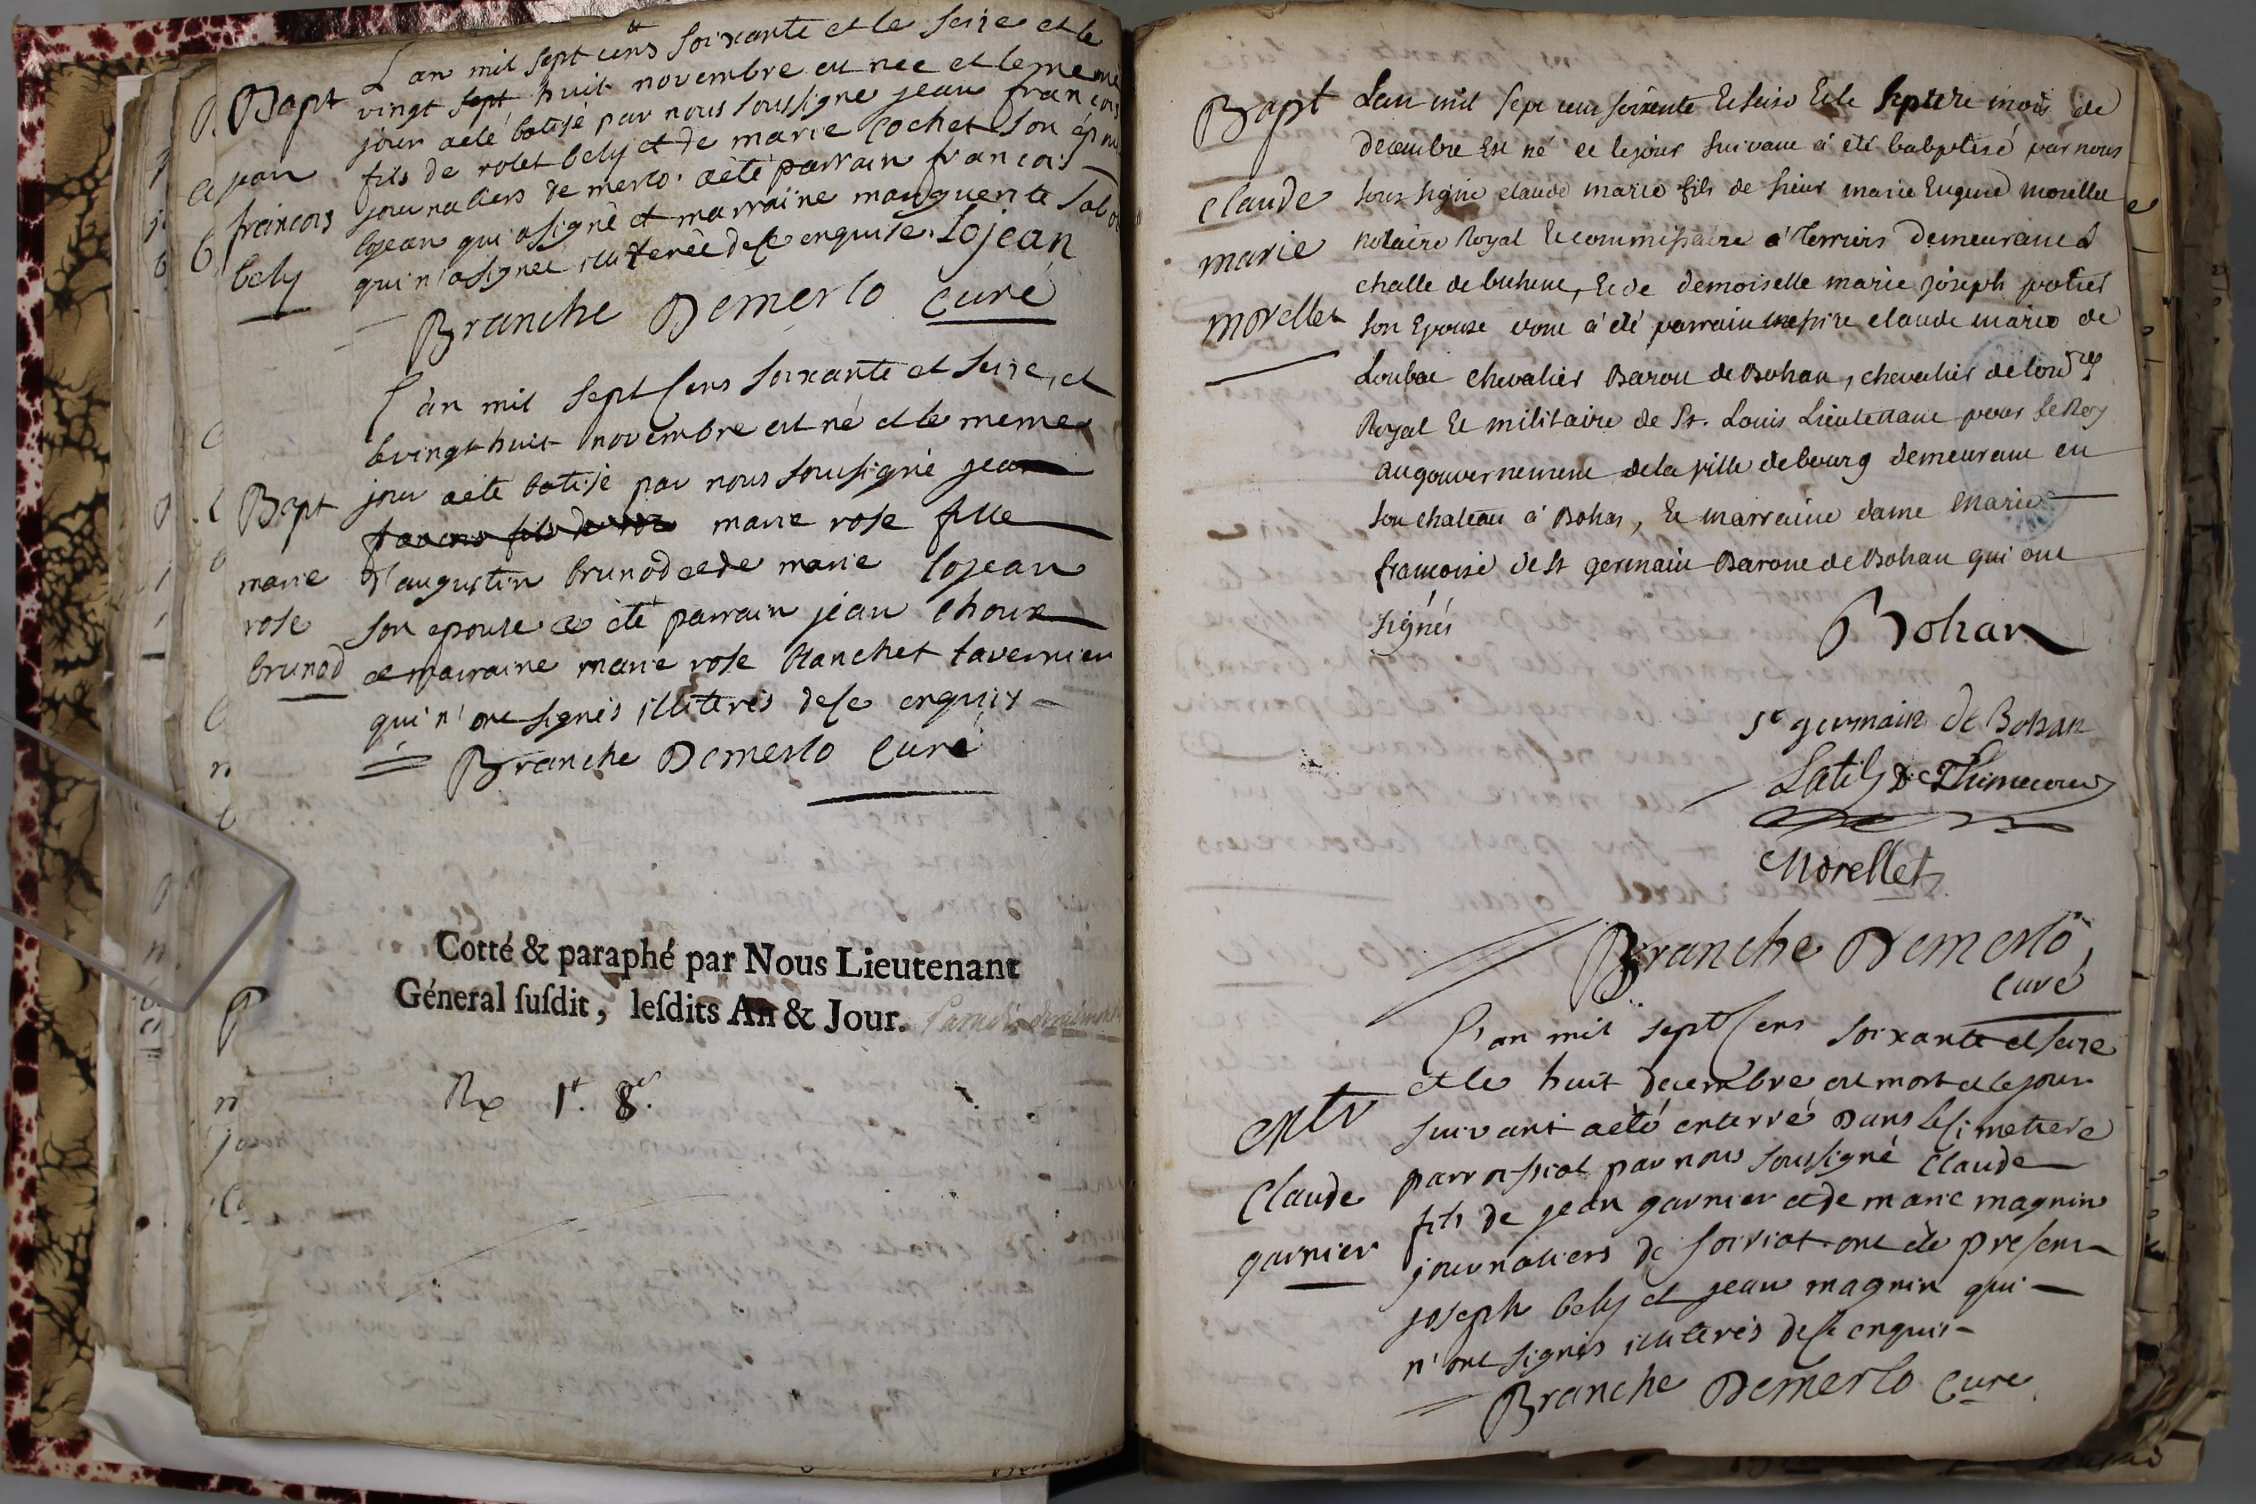 L'an mil sept cens soixante et le seize et le
vingt sept huit novembre est née et le meme
Bapt
jour aété batisé par nous soussigné jean francois
jean
fils de rolet bely et de marie cochet son épouse
francois
journaliers de merlo. aété parrain francois
bely
lojean qui a signé et marraine marguerite
qui n'a signée illiterée de ce enquise. Lojean
Branche Demerlo curé
L'an mil sept cens soixante et seize, et
le vingt huit novembre est né et le meme
Bapt
jour aété batisé par nous soussigné jean
francois fils de marie rose fille
marie
d'augustin brunod et de marie lojean
rose
son epouse a été parrain jean choux
brunod
et marraine marie rose blanchet tavernier
qui n'ont signés illiterés de ce enquis
Branche Demerlo Curé
Cotté & paraphé par Nous Lieutenant
Géneral susdit, lesdits An & Jour.
Bapt
L'an mil sept cens soixente et seise et le septieme mois de
decembre est né et le jour suivant à été babptisé par nous
claude
sous signé claude marie fils de sieur marie Eugene morellet
marie
notaire Royal et commissaire à Terriers demeurant à
challe de buhene, et de demoiselle marie joseph
morellet
son Epouse dont à été parrain messire claude marie de
Loubat chevalier Baron de Bohan, chevalier de l'ordre
Royal et militaire de St. Louis Lieutenant pour le Roy
au gouvernement de la ville de bourg demeurant en
son chateau à Bohas, et marraine dame marie
francoise de st germain Barone de Bohan qui ont
signés
Bohan
St germain de Bohan
Morellet
Branche Demerlo
curé
L'an mil sept Cens soixante et seize
et le huit decembre est mort et le jour
suivant aété enterré dans le cimetiere
Claude
parroissial par nous soussigné Claude
garnier
fils de jean garnier et de marie magnin
journaliers de soiriat ont été presens
joseph bely et jean magnin qui
n'ont signés illiterés de ce enquis
Branche Demerlo Cure